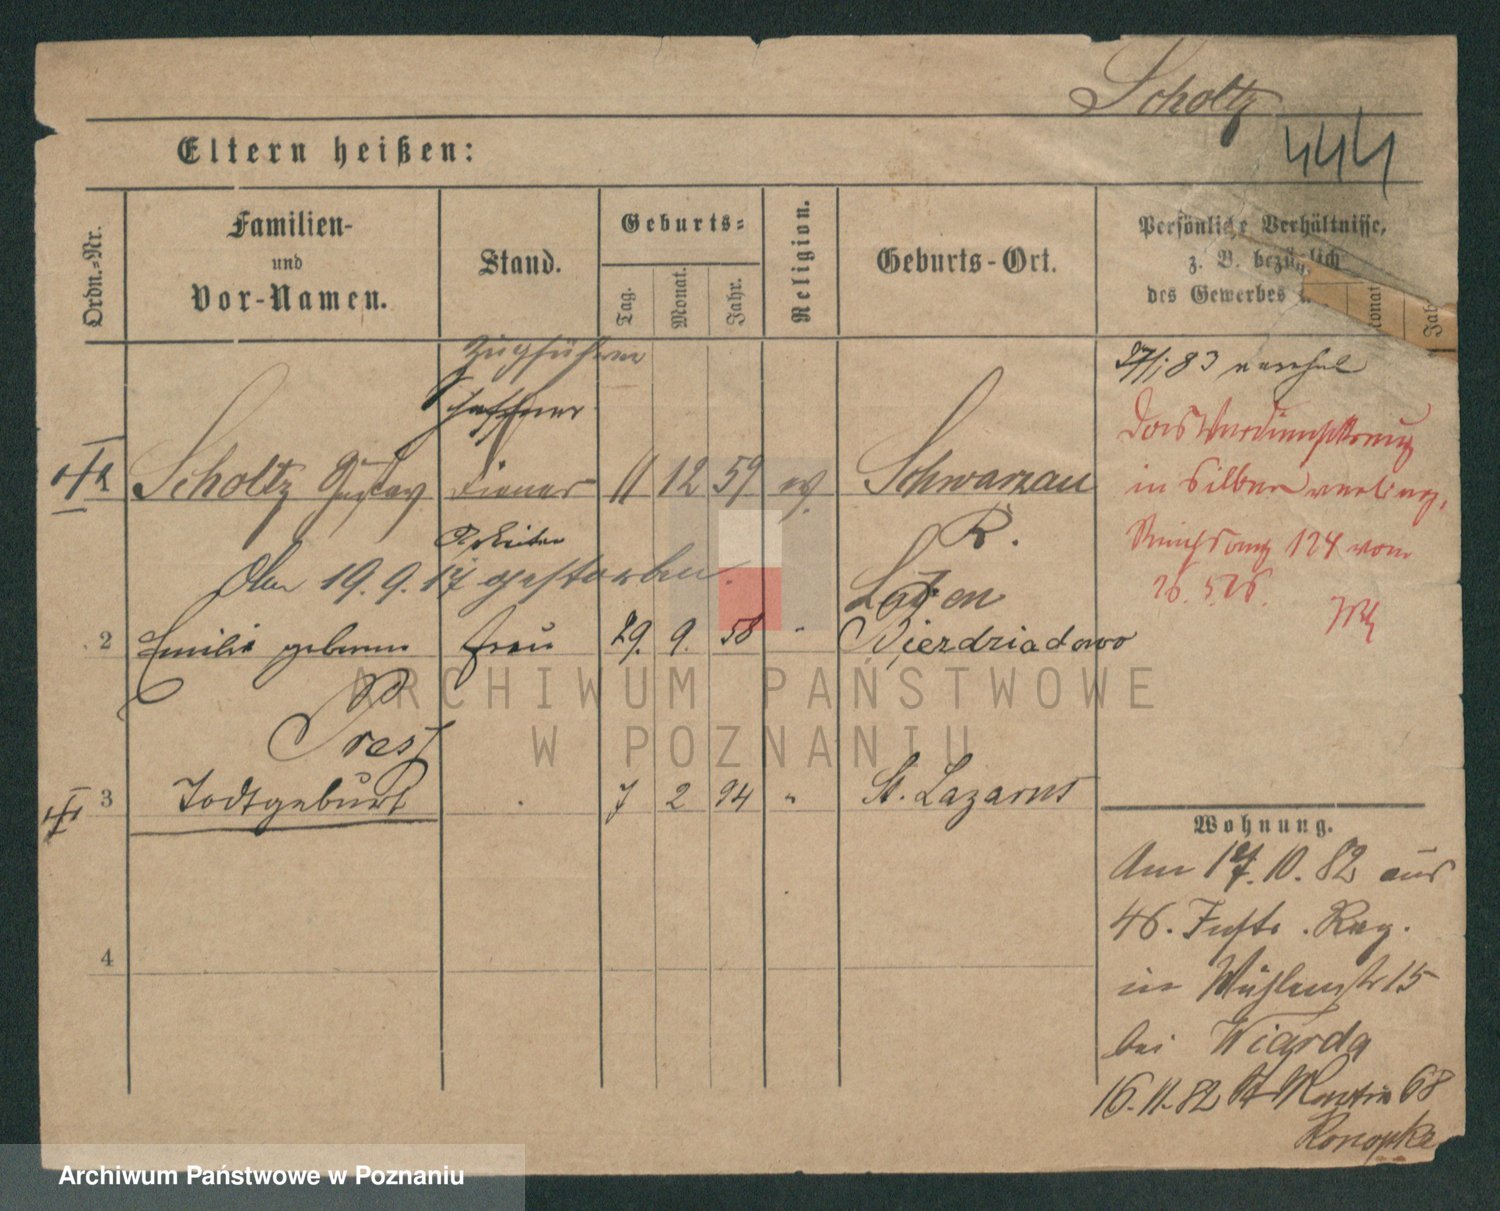 Scholtz
444
Eltern heißen:
Ordn.-Nr.
Familien-
und
Vor-Namen.
Stand.
Geburts-
Tag.
Monat.
Jahr.
Religion.
Geburts-Ort.
Persönliche Verhältnisse,
z. B. bezüglich
des Gewerbes
Monat
Jah
Zugführer
Schaffner
Scholtz Gustav Diener 11 12 59 ev. Schwarzau
Arbeiter
K.
Am 19. 9. 17 gestorben.
2 Emilie geborene Frau 29. 9. 58 " Bierdziadowo
Prest
3 Todtgeburt 7 2 94 " St. Lazarus
4
27/1 83
Das Verdienstkreuz
in Silber
124 vom
26. 5. 26.
Wohnung.
Am 17. 10. 82 aus
46. Inftr. Reg.
in Mühlenstr 15
bei Wiarda
16. 11. 82 St Martin 68
Konopka
ARCHIWUM PAŃSTWOWE
W POZNANIU
Archiwum Państwowe w Poznaniu